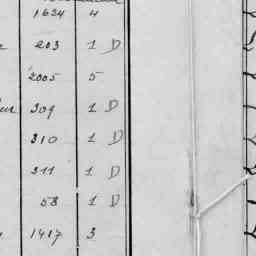 1634 4
203 1 D
2005 5
309 1 D
310 1 D
311 1 D
58 1 D
1417 3